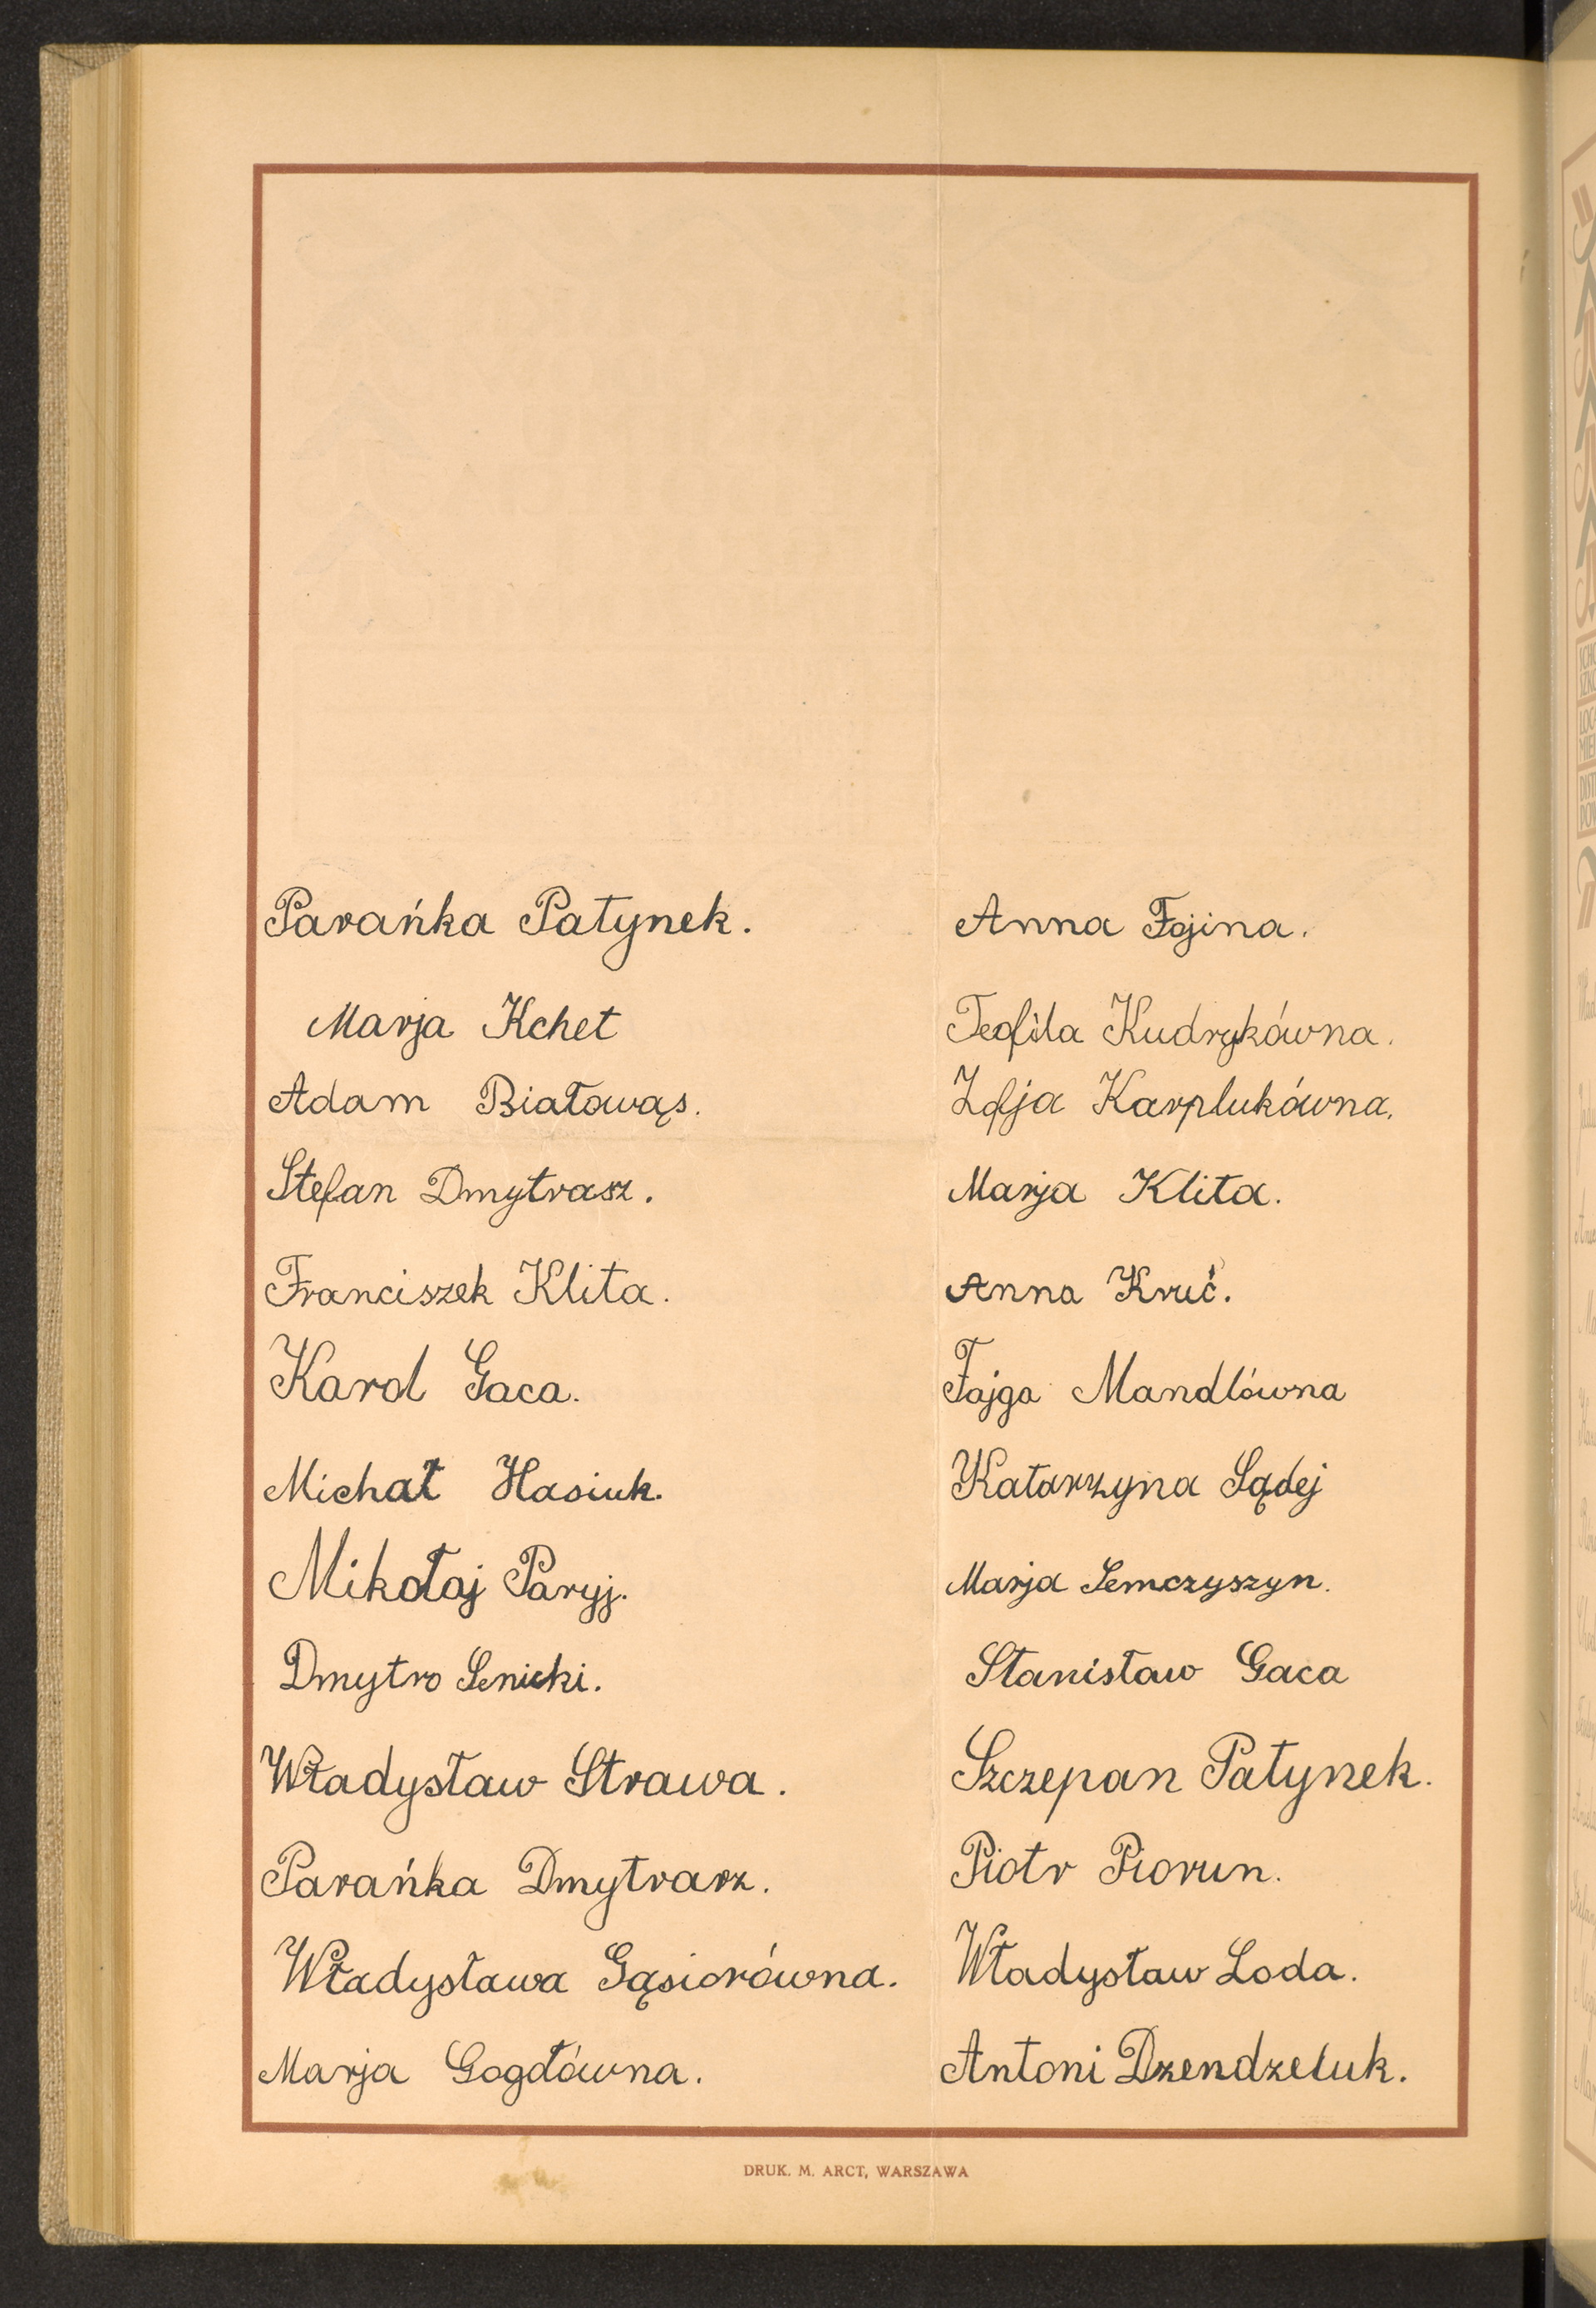 Parańka Patynek.
Marja Kchet
Adam Białowąs.
Stefan Dmytrasz.
Franciszek Klita.
Karol Gaca.
Michał Hasiuk.
Mikołaj Paryj.
Dmytro Senicki.
Władysław Strawa.
Parańka Dmytrarz.
Władysława Gąsiorówna.
Marja Gogołówna.
Anna Fajina.
Teofila Kudrykówna.
Zofja Karplukówna.
Marja Klita.
Anna Kruć.
Fajga Mandlówna
Katarzyna Sądej
Marja Semczyszyn.
Stanisław Gaca
Szczepan Patynek.
Piotr Piorun.
Władysław Loda.
Antoni Dzendzeluk.
DRUK. M. ARCT, WARSZAWA